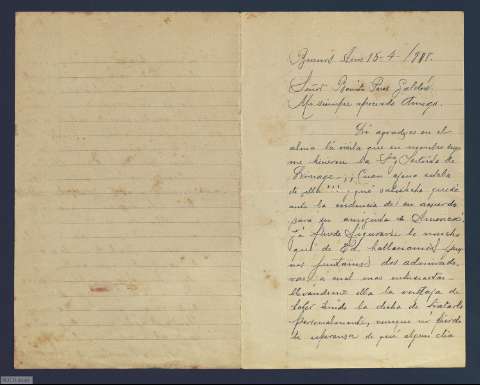 Buenos Aires 15-4-/905.
Señor Benito Perez Galdós.
Mi siempre apreciado Amigo.
Le agradezco en el
alma la visita que en nombre suyo
me hicieron la Sra
¡¡Cuan ajena estaba
de ella!!! y qué satisfecha quedé
ante la evidencia de su recuerdo
para su amiguita de America!
Ya puede figurarse lo mucho
que de Ud. hablariamos
dos admirado-
ras a cual mas entusiastas
llevándome ella la ventaja de
haber tenido la dicha de tratarlo
personalmente, aunque no pierdo
la esperanza de que algun dia